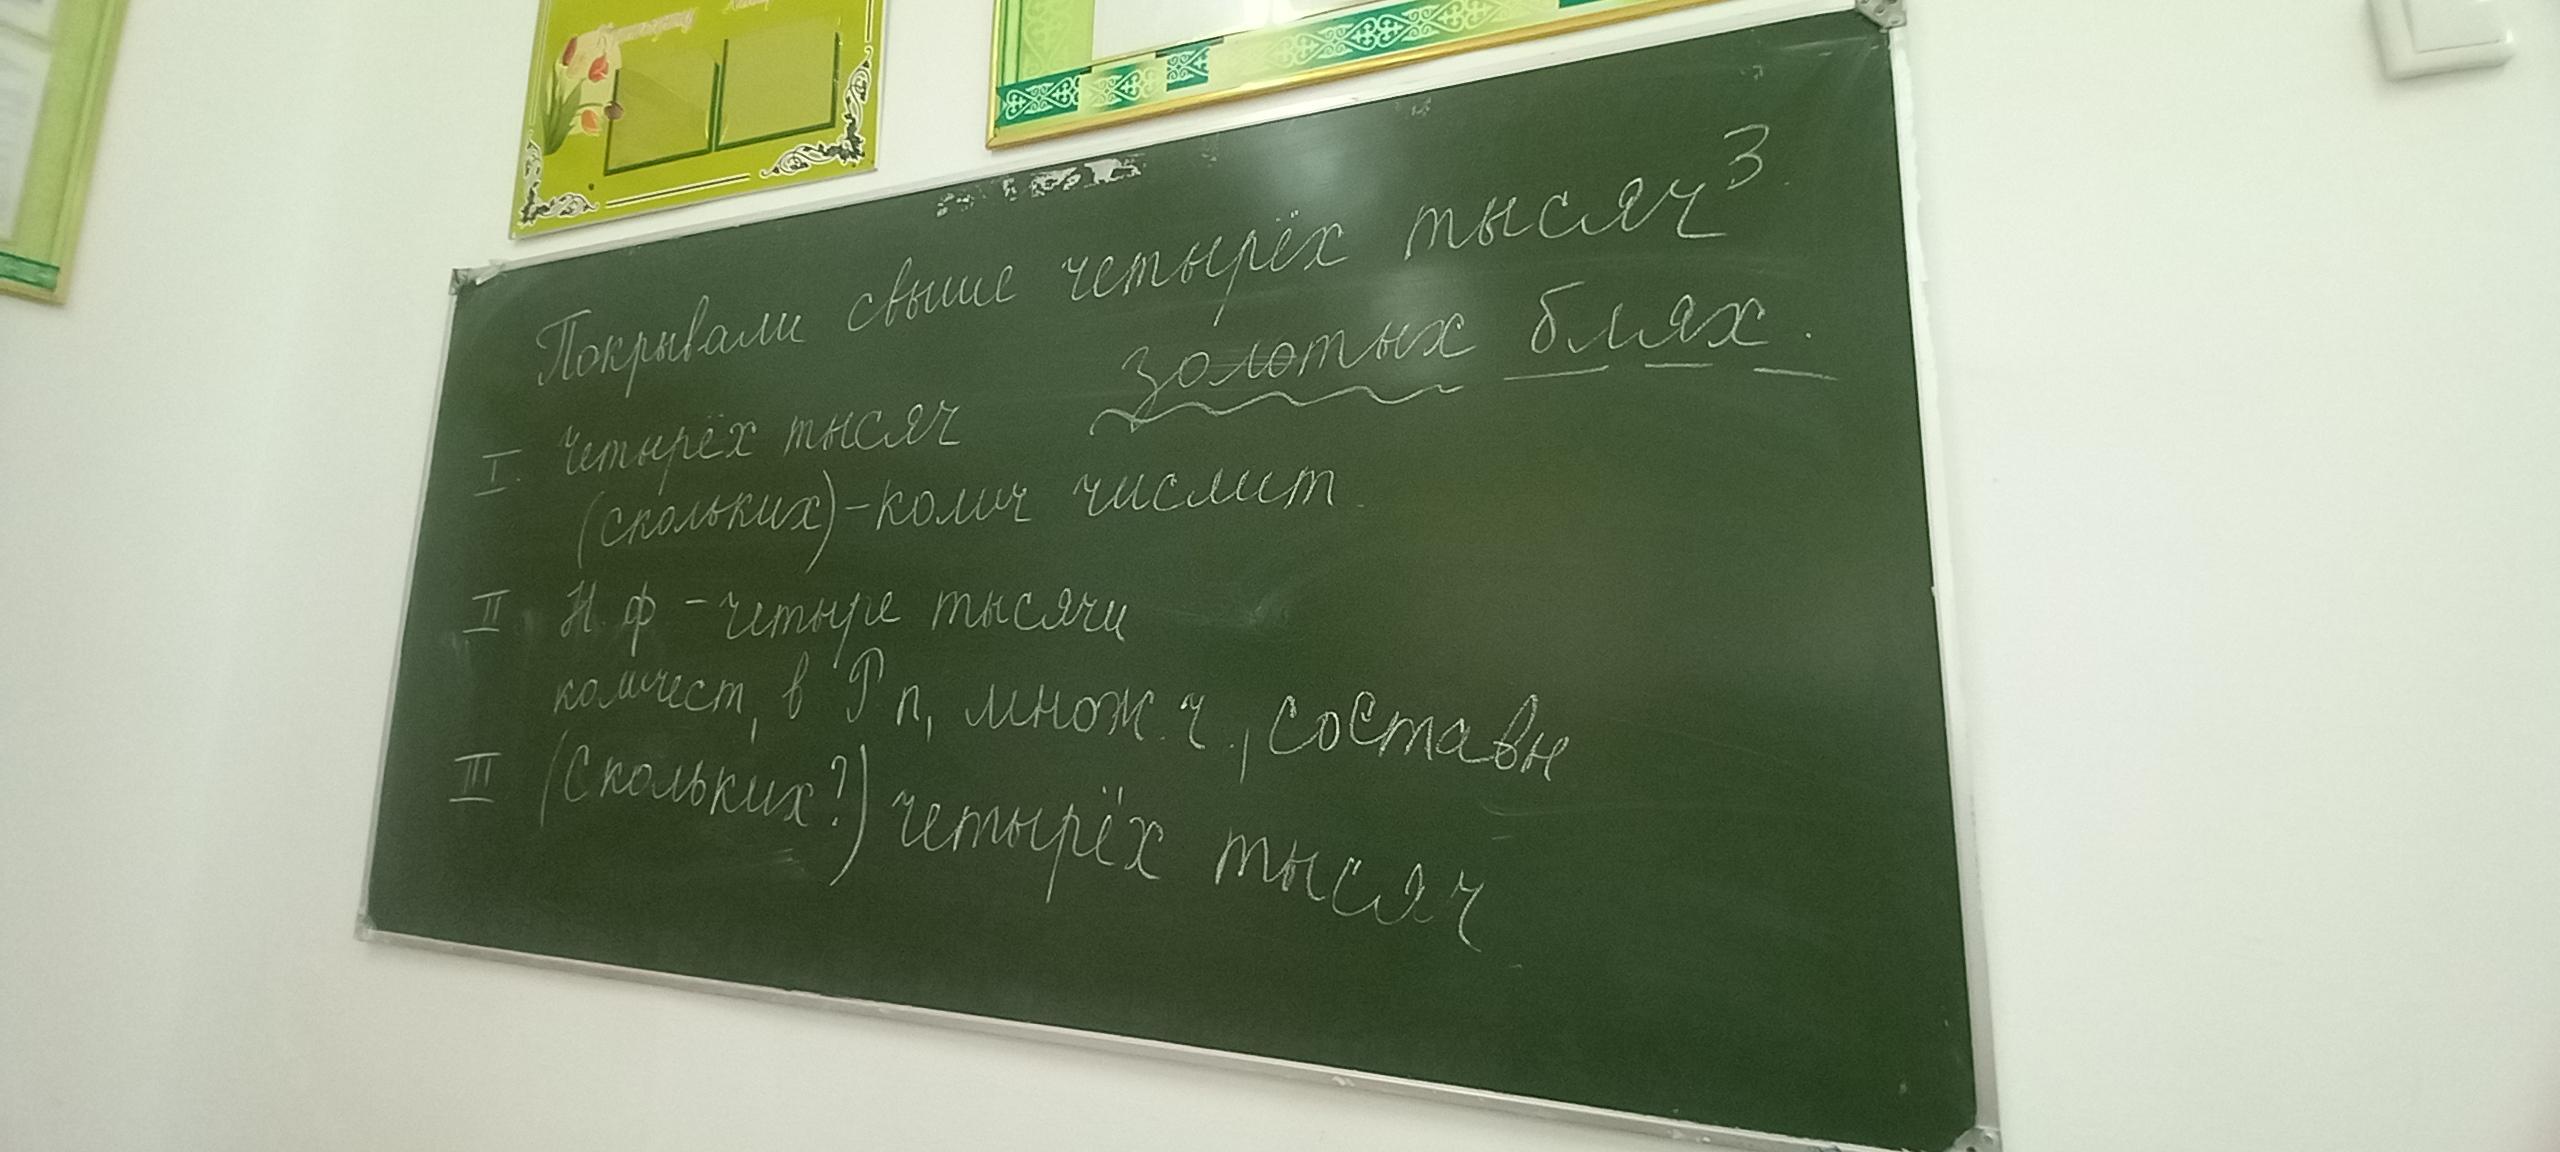 Покрывали свыше четырёх тысяч³
золотых блях.
I. Четырёх тысяч
(скольких) - колич числит.
II Н. ф - четыре тысячи
количест, в Р п, множ. ч., составн
III (Скольких?) четырёх тысяч